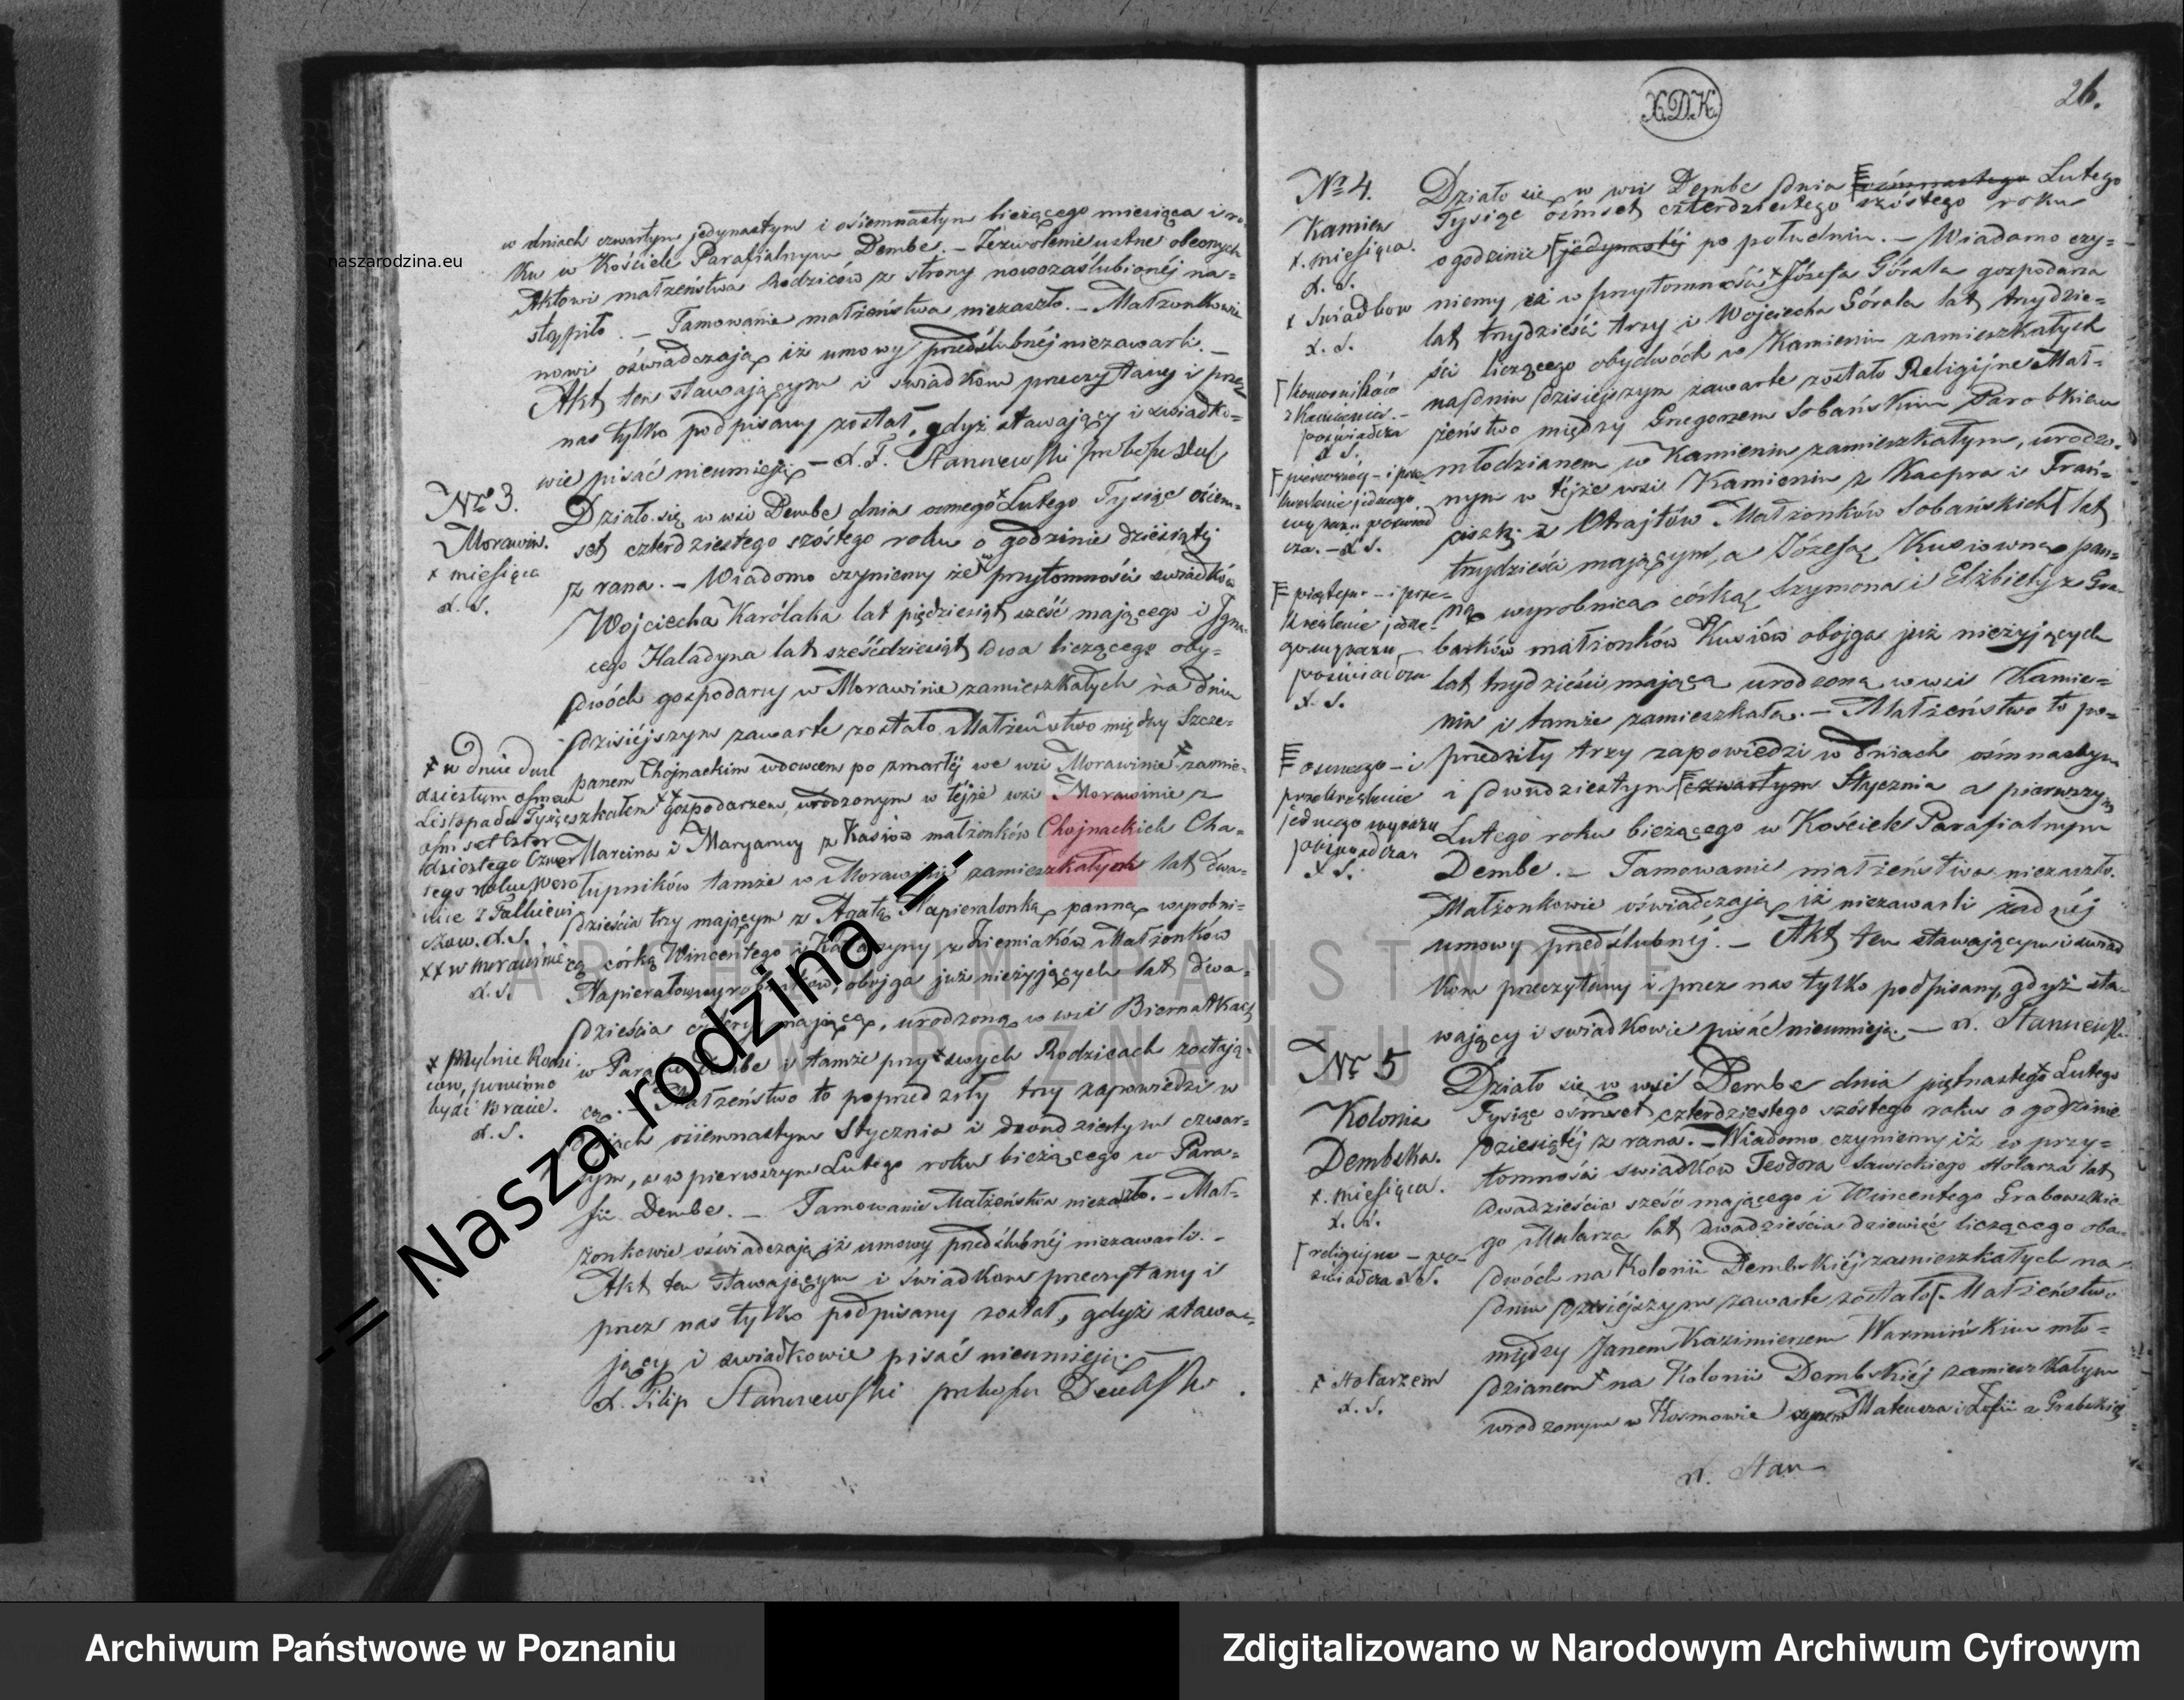 w dniach czwartym jedynastym i ośiemnastym bieżącego miesiąca i ro-
ku w Kościele Parafialnym Dembe. — Zezwolenie ustne obecnych
Aktowi małżeństwa Rodziców ze strony nowozaślubionéj na=
stąpiło. — Tamowanie małżeństwa niezaszło. — Małżonkowie
nowi oświadczają iż umowy przedślubnéj niezawarli. —
Akt ten stawającym i swiadkom przeczytany i przez
nas tylko podpisany został, gdyż stawający i swiadko=
wie pisać nieumieją —
Nro 3.
Morawin.
x miesiąca
X. S.
Działo się w wsi Dembe dnia osmego x Lutego Tysiąc ośiem=
set czterdziestego szóstego roku o godzinie dziesiątéj
z rana. — Wiadomo czyniemy że w przytomności swiadków
Wojciecha Karólaka lat pięździesiąt sześć mającego i Igna-
cego Haladyna lat sześćdziesiąt dwa liczącego oby=
dwóch gospodarzy w Morawinie zamieszkałych na dniu
dzisiéjszym zawarte zostało Małżeństwo między Szcze=
panem Chojnackim wdowcem po zmarłéj we wsi Morawinie x zamie=
szkałem xx gospodarzem, urodzonym w téjże wsi Morawinie z
Marcina i Maryanny z Kasiów małżonków Chojnackich Cha=
łupników tamże w Morawinie zamieszkałych lat dwa=
dzieścia trzy mającym z Agatą Napieralonką panną wyrobni=
cą córką Wincentego i Katarzyny z Ziemiaków Małżonków
obojga już nieżyjących lat dwa=
dzieścia cztery mającą, urodzoną w wsi Biernatkach
w Parafii Dembe i tamże przy x swych Rodzicach zostają=
cą. Małżeństwo to poprzedziły trzy zapowiedzi w
dniach osiemnastym Stycznia i dwudziestym czwar=
tym, a w pierwszym Lutego roku bieżącego w Para=
fii Dembe. — Tamowanie Małżeństwa niezaszło. — Mał=
żonkowie oświadczają iż umowy przedślubnéj niezawarli. -
Akt ten stawającym i świadkom przeczytany i
przez nas tylko podpisany został, gdyż stawa=
jący i swiadkowie pisać nieumieją. —
X. Filip
x w dniu dwu
dziestym osmem
Listopada Tysiąc
ośmset czter
dziestego czwar
tego roku
X. S.
xx w Morawinie
X. S.
x Mylnie Rodzi
ców, powinno
bydź Bracie.
X. S.
X.D.K.
26.
Nr 4.
Kamien
x. miesiąca.
X. S.
x Swiadkow
X. S.
Działo się w wsi Dembe dnia Lutego
Tysiąc ośmset czterdziestego szóstego roku
o godzinie jedynastéj po południu. — Wiadomo czy=
niemy iż w przytomność x Józefa Górala gospodarza
lat trzydzieści trzy i Wojciecha Górala lat trzydzie=
ści liczącego obydwóch w Kamieniu zamieszkałych
na dniu dzisiejszym zawarte zostało Religijne Mał=
żeństwo między Grzegorzem Sobańskim Parobkiem
młodzianem w Kamieniu zamieszkałym, urodzo=
nym w téjże wsi Kamieniu z Kacpra i Fran=
ciszki z Małżonków Sobańskich lat
trzydzieści mającym, a Józefą Kusiowną pan=
ną wyrobnicą córką Szymona i Elżbiety z Gra=
barków małżonków Kusiów obojga już nieżyjących
lat trzydzieści mającą urodzoną w wsi Kamie=
niu i tamże zamieszkałą. — Małżeństwo to po=
przedziły trzy zapowiedzi w dniach ośmnastym
i dwudziestym czwartym Stycznia a pierwszym
Lutego roku bieżącego w Kościele Parafialnym
Dembe. — Tamowanie małżeństwa niezaszło.
Małżonkowie oświadczają, iż niezawarli żadnéj
umowy przedślubnéj. — Akt ten stawającym i swiad
kom przeczytany i przez nas tylko podpisany, gdyż sta=
wający i swiadkowie pisać nieumieją. —
Nr 5
Kolonia
Dembska.
x. miesiąca.
X. S.
Działo się w wsi Dembe dnia piętnastego x Lutego
Tysiąc ośmset czterdziestego szóstego roku o godzinie
dziesiątéj z rana. — Wiadomo czyniemy iż w przy=
tomności swiadków Teodora Sawickiego stolarza lat
dwadzieścia sześć mającego i Wincentego Grabowskie-
go Malarza lat dwadzieścia dziewięć liczącego oba=
dwóch na Kolonii Dembskiéj zamieszkałych na
dniu dzisiéjszym zawarte zostało Małżeństwo
między Janem Kazimierzem Warmińskim mło=
dzianem x na Kolonii Dembskiéj zamieszkałym
urodzonym w Kosmowie synem Mateusza i Zofii z Grabskich
x stolarzem
X. S.
naszarodzina.eu
-= Nasza rodzina =-
ARCHIWUM PAŃSTWOWE
W POZNANIU
Archiwum Państwowe w Poznaniu
Zdigitalizowano w Narodowym Archiwum Cyfrowym